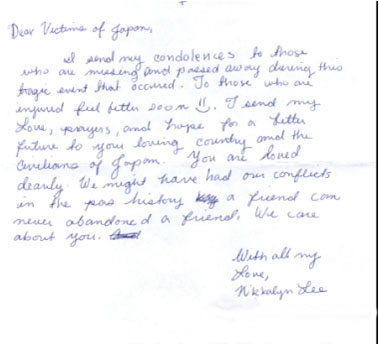 Dear Victims of Japan,
I send my condolences to those
who are missing and passed away during this
tragic event that occured. To those who are
injured feel better soon. I send my
love, prayers, and hope for a better
future to your loving country and the
civilians of Japan. You are loved
dearly. We might have had our conflicts
in the pas history a friend can
never abandoned a friend. We care
about you.
With all my
Love,
Nikkalyn Lee